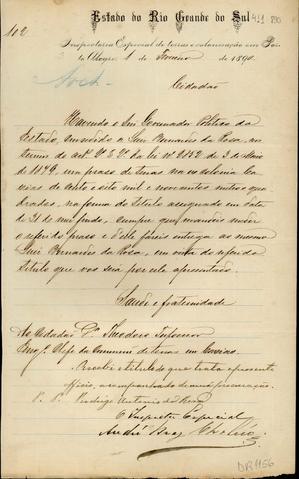 Estado do Rio Grande do Sul
102
Inspectoria Especial de terras e colonisação em Por
to Alegre, 1 de Fevereiro de 1890.
Cidadão
Havendo o Snr. Governador Politico do
Estado, concedido a Luiz Bernardes da Rosa, nos
termos do art. da lei nº de 3 de Maio
de um praso de terras na ex colonia Ca
xias de vinte e sete mil e novecentos metros qua
drados, na forma do titulo assignado em data
de 21 do mez findo, cumpre que mandeis medir
o referido praso e d'elle façais entrega ao mesmo
Luiz Bernardes da Rosa, em vista do referido
titulo que vos será por elle apresentado.
Saude e fraternidade
Ao Cidadão Dr. Theodoro
Engº Chefe da Commissão de terras em Caxias.
Recebi o titulo de que trata o presente
officio, acompanhado de uma procuração.
P. P. Rodrigo Antonio da Rosa
O Inspector Especial
André
DR1156